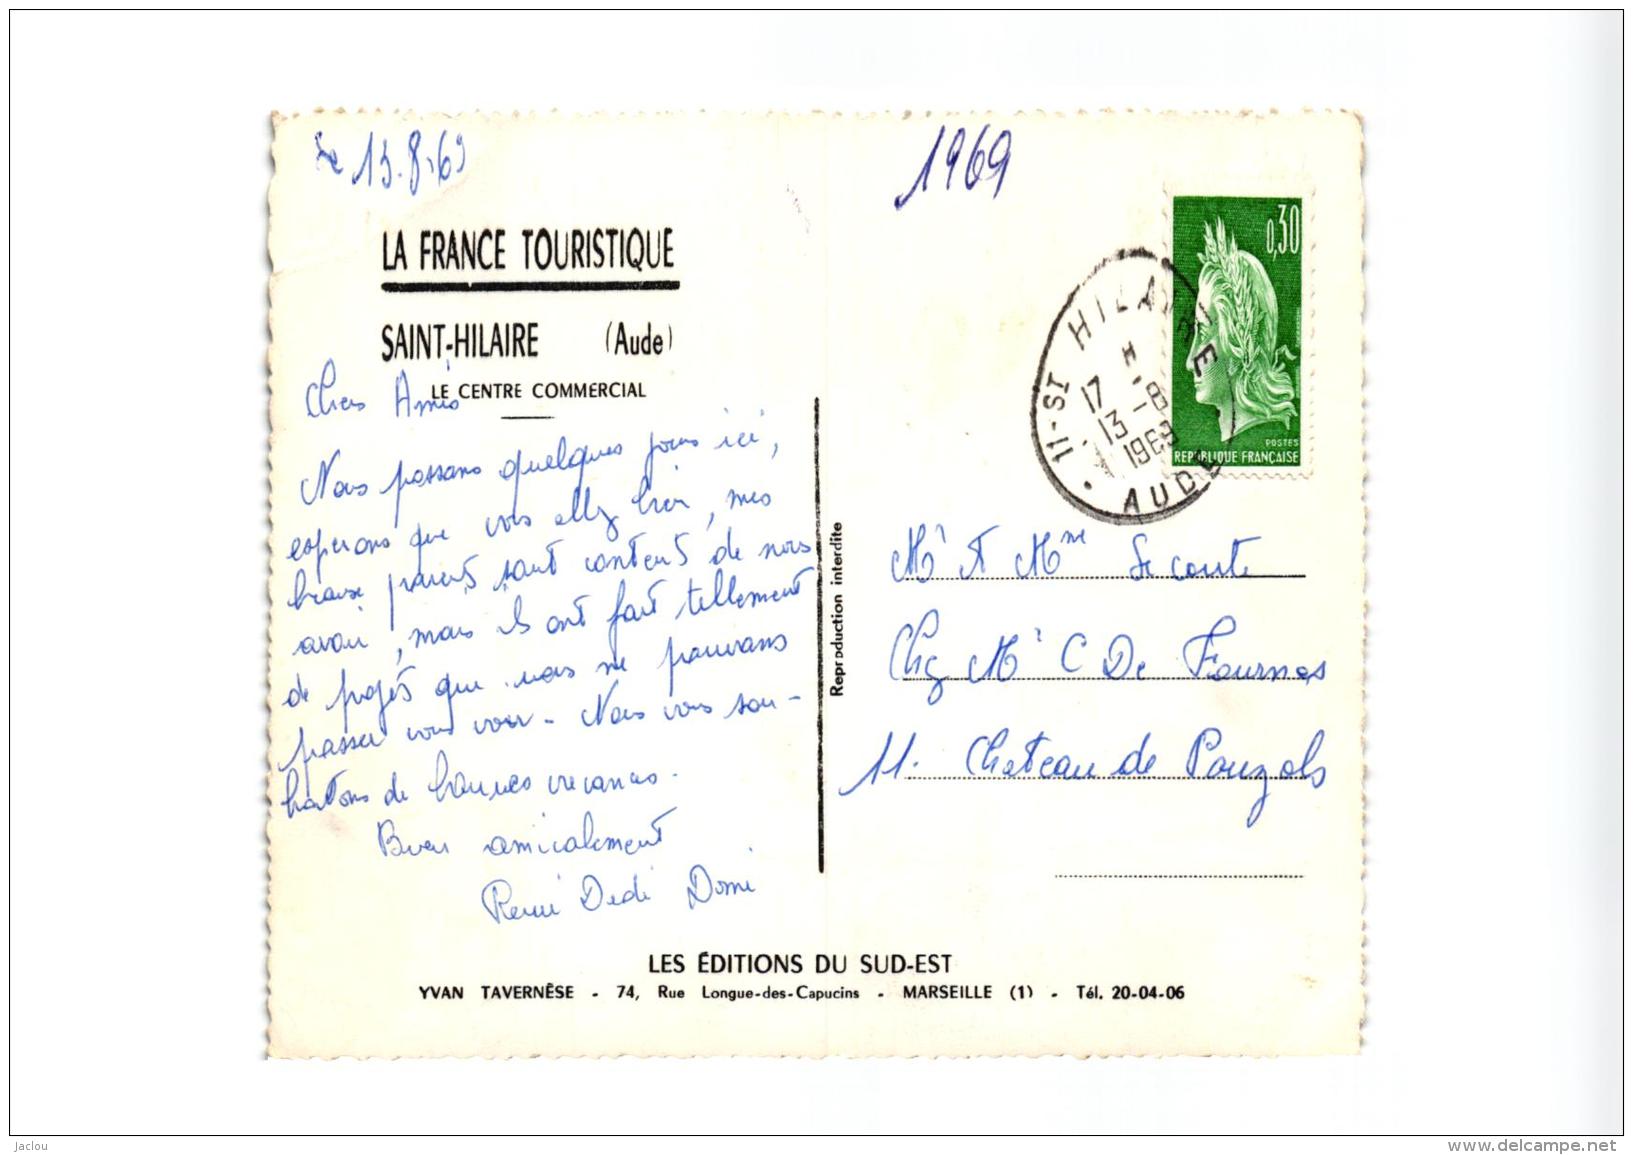 le 13.8.69
1969
LA FRANCE TOURISTIQUE
SAINT-HILAIRE (Aude)
LE CENTRE COMMERCIAL
Chers Amis
Nous passons quelques jours ici,
esperons que vous allez bien, mes
beaux parents sont contents de nous
avoir, mais ils ont fait tellement
de projets que nous ne pouvons
passer vous voir - Nous vous sou-
haitons de bonnes vacances.
Bien amicalement
Rémi Dedé Domi
Reproduction interdite
0,30
POSTES
REPUBLIQUE FRANÇAISE
11-ST HILAIRE
17 H
13 -8
1969
AUDE
Mr & Mme Lecoute
Chez Mr C De Fournas
11. Chateau de Pouzols
LES ÉDITIONS DU SUD-EST
YVAN TAVERNÈSE - 74, Rue Longue-des-Capucins - MARSEILLE (1) - Tél. 20-04-06
jaclou
www.delcampe.net